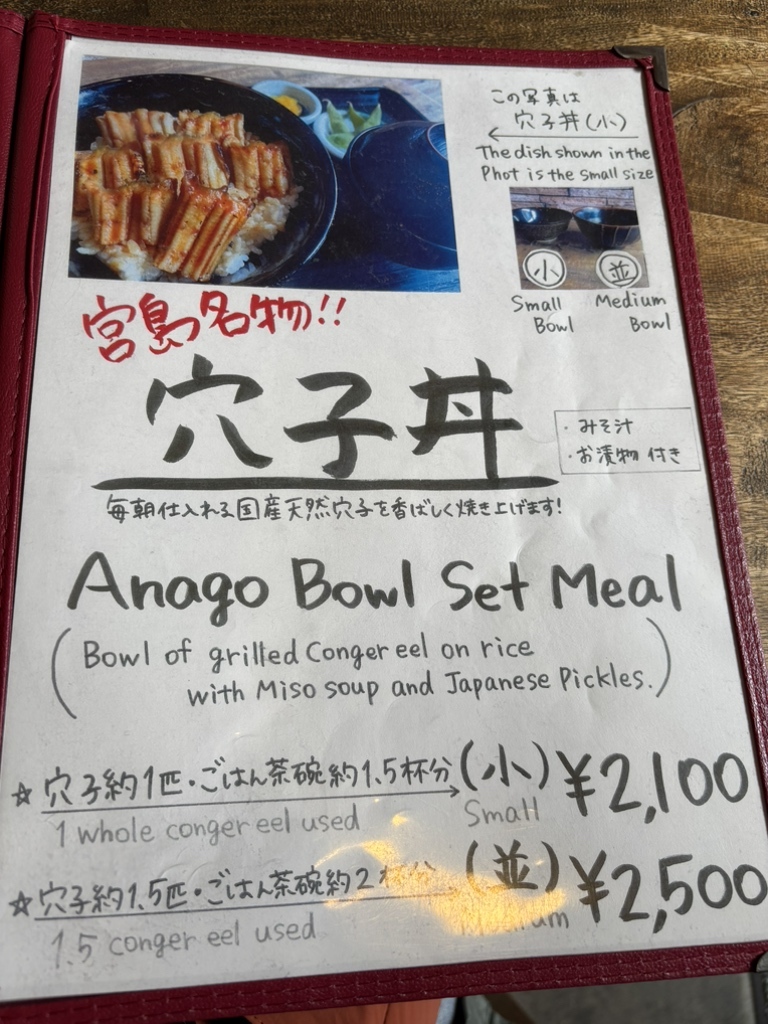 この写真は
穴子丼(小)
The dish shown in the
Phot is the small size
小 並
Small Bowl
Medium Bowl
宮島名物!!
穴子丼
・みそ汁
・お漬物 付き
毎朝仕入れる国産天然穴子を香ばしく焼き上げます!
Anago Bowl Set Meal
(Bowl of grilled Conger eel on rice
with Miso soup and Japanese Pickles.)
☆穴子約1匹・ごはん茶碗約1.5杯分(小)¥2,100
1 whole conger eel used Small
☆穴子約1.5匹・ごはん茶碗約2杯分(並)¥2,500
1.5 conger eel used Medium